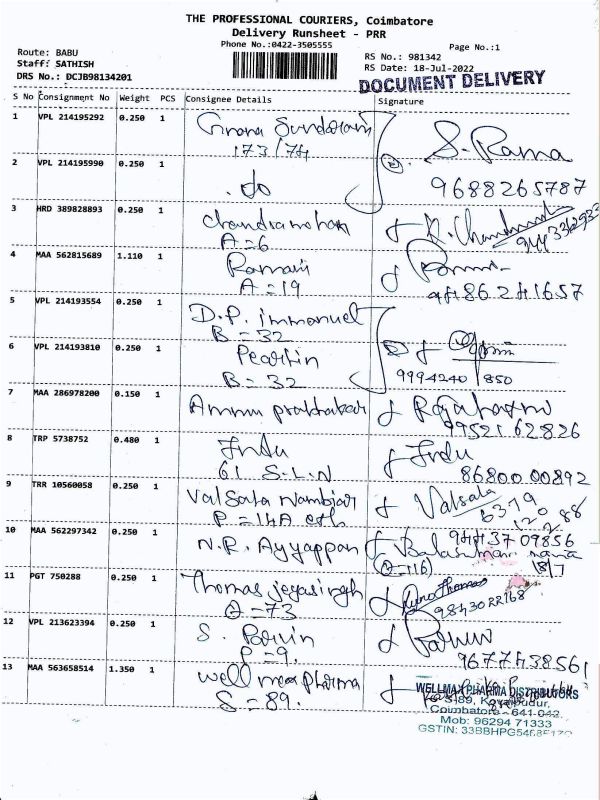 THE PROFESSIONAL COURIERS, Coimbatore
Delivery Runsheet - PRR
Phone No.:0422-3505555
Page No.:1
Route: BABU
Staff: SATHISH
DRS No.: DCJB98134201
RS No.: 981342
RS Date: 18-Jul-2022
DOCUMENT DELIVERY
S No Consignment No Weight PCS Consignee Details Signature
1 VPL 214195292 0.250 1 Sundaram S. Rama
173/74
2 VPL 214195990 0.250 1 do 9688265787
3 HRD 389828893 0.250 1 Chandramohan
A=6
4 MAA 562815689 1.110 1 Ramani
A=19 9486241657
5 VPL 214193554 0.250 1 D.P. Immanuel
B=32
6 VPL 214193810 0.250 1
B=32 9994240 850
7 MAA 286978200 0.150 1 Ammu prabhakar
9952162826
8 TRP 5738752 0.480 1 Indu Indu
61 S.L.N 86800 00892
9 TRR 10560058 0.250 1 Valsala Nambiar Valsala
P=14A
10 MAA 562297342 0.250 1 N.R. Ayyappan 9443709856
18/7
11 PGT 750288 0.250 1 Thomas jeyasingh
Q=73 9843022168
12 VPL 213623394 0.250 1 S.
P=9. 9677438561
13 MAA 563658514 1.350 1 Well max pharma
S=89.
WELLMAX PHARMA DISTRIBUTORS
S-89, Kovaipudur,
Coimbatore - 641-042.
Mob: 96294 71333